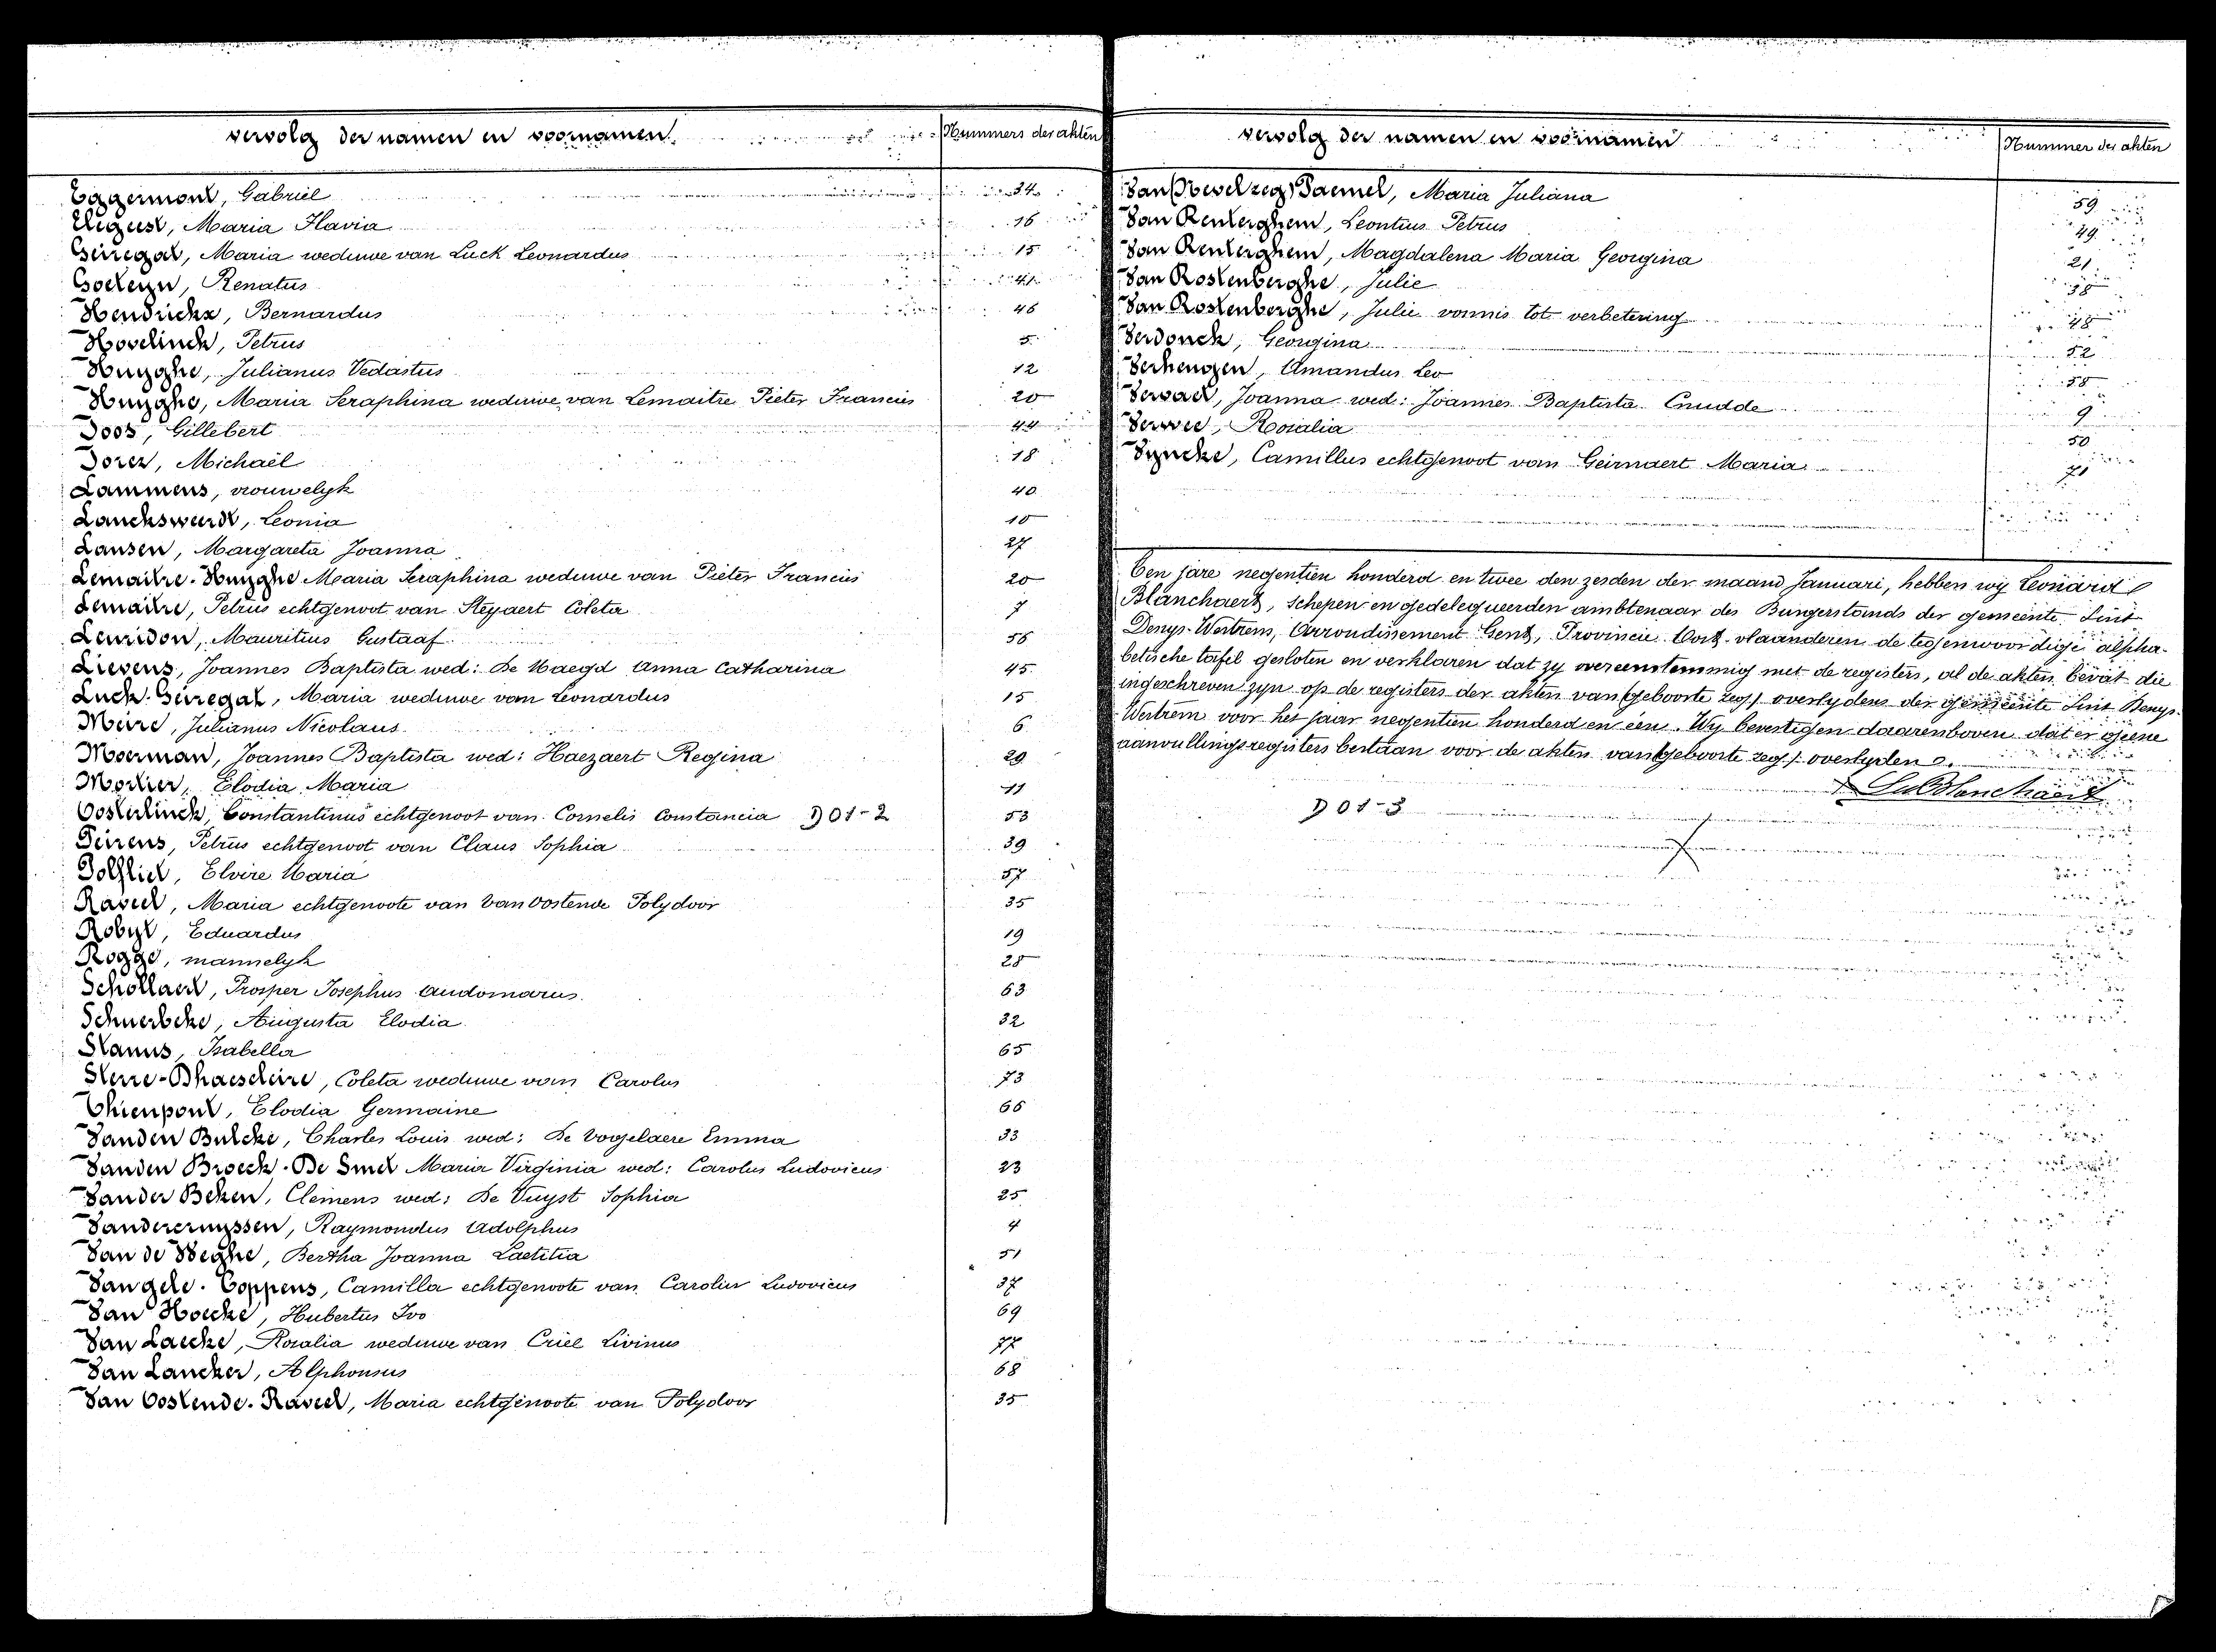 vervolg der namen en voornamen. Nummers der akten
Eggermont, Gabriel 34
Maria Flavia 16
Geiregat, Maria weduwe van Luck Leonardus 15
Goeteyn, Renatus 41
Hendrickx, Bernardus 46
Hovelinck, Petrus 5
Huyghe, Julianus Vedastus 12
Huyghe, Maria Seraphina weduwe van Lemaitre Pieter Francies 20
Joos, Gillebert 44
Jorez, Michaël 18
Lammens, vrouwelyk 40
Lanckswerdt, Leonia 10
Lansen, Margareta Joanna 27
Lemaitre-Huyghe Maria Seraphina weduwe van Pieter Francies 20
Lemaitre, Petrus echtgenoot van Steyaert Coleta 7
Leuridon, Mauritius Gustaaf 56
Lievens, Joannes Baptista wed: De Maegd Anna Catharina 45
Luck-Geiregat, Maria weduwe van Leonardus 15
Meire, Julianus Nicolaus 6
Moerman, Joannes Baptista wed: Haezaert Regina 29
Mortier, Elodia Maria 11
Oosterlinck, Constantinus echtgenoot van Cornelis Constancia D01-2 53
Peirens, Petrus echtgenoot van Claus Sophia 39
Polfliet, Elvire Maria 57
Raveel, Maria echtgenoote van Van Oostende Polydoor 35
Robyt, Eduardus 19
Rogge, mannelyk 28
Schollaert, Prosper Josephus Audomarus 63
Schuerbeke, Augusta Elodia 32
Stanus, Isabella 65
Sterre-Dhaeseleire, Coleta weduwe van Carolus 73
Thienpont, Elodia Germaine 66
Vanden Bulcke, Charles Louis wed: De Vogelaere Emma 33
Vanden Broeck-De Smet Maria Virginia wed: Carolus Ludovicus 23
Vander Beken, Clemens wed: De Vuyst Sophia 25
Vandererruyssen, Raymondus Adolphus 4
Van de Veghe, Bertha Joanna Laetitia 51
Van gele-Coppens, Camilla echtgenoote van Carolus Ludovicus 37
Van Hoecke, Hubertus Ivo 69
Van Laecke, Rosalia weduwe van Criel Livinus 77
Van Lancker, Alphonsus 68
Van Oostende-Raveel, Maria echtgenoote van Polydoor 35
vervolg der namen en voornamen Nummer der akten
Van zeg) Paemel, Maria Juliana 59
Van Renterghem, Leontius Petrus 49
Van Renterghem, Magdalena Maria Georgina 21
Van Rostenberghe, Julie 38
Van Rostenberghe, Julie vonnis tot verbetering 48
Verdonck, Georgina 52
Verhengen, Amandus Leo 58
Vervaet, Joanna wed: Joannes Baptista Cnudde 9
Verwee, Rosalia 50
Vyncke, Camillus echtgenoot van Geirnaert Maria 71
Ten jare negentien honderd en twee den zesden der maand Januari, hebben wij Leonard
Blanchaert, schepen en gedelegueerden ambtenaar des Burgerstands der gemeente Sint
Denys-Westrem, Arrondissement Gent, Provincie Oost-vlaanderen de tegenwoordige alpha-
betische tafel gesloten en verklaren dat zy overeenstemmig met de registers, al de akten bevat die
ingeschreven zyn op de registers der akten van (geboorte zeg) overlydens der gemeente Sint Denys-
Westrem voor het jaar negentien honderd en een. Wij bevestigen daarenboven dat er geene
aanvullingsregisters bestaan voor de akten van (geboorte zeg) overlyden.
Blanchaert
D01-3